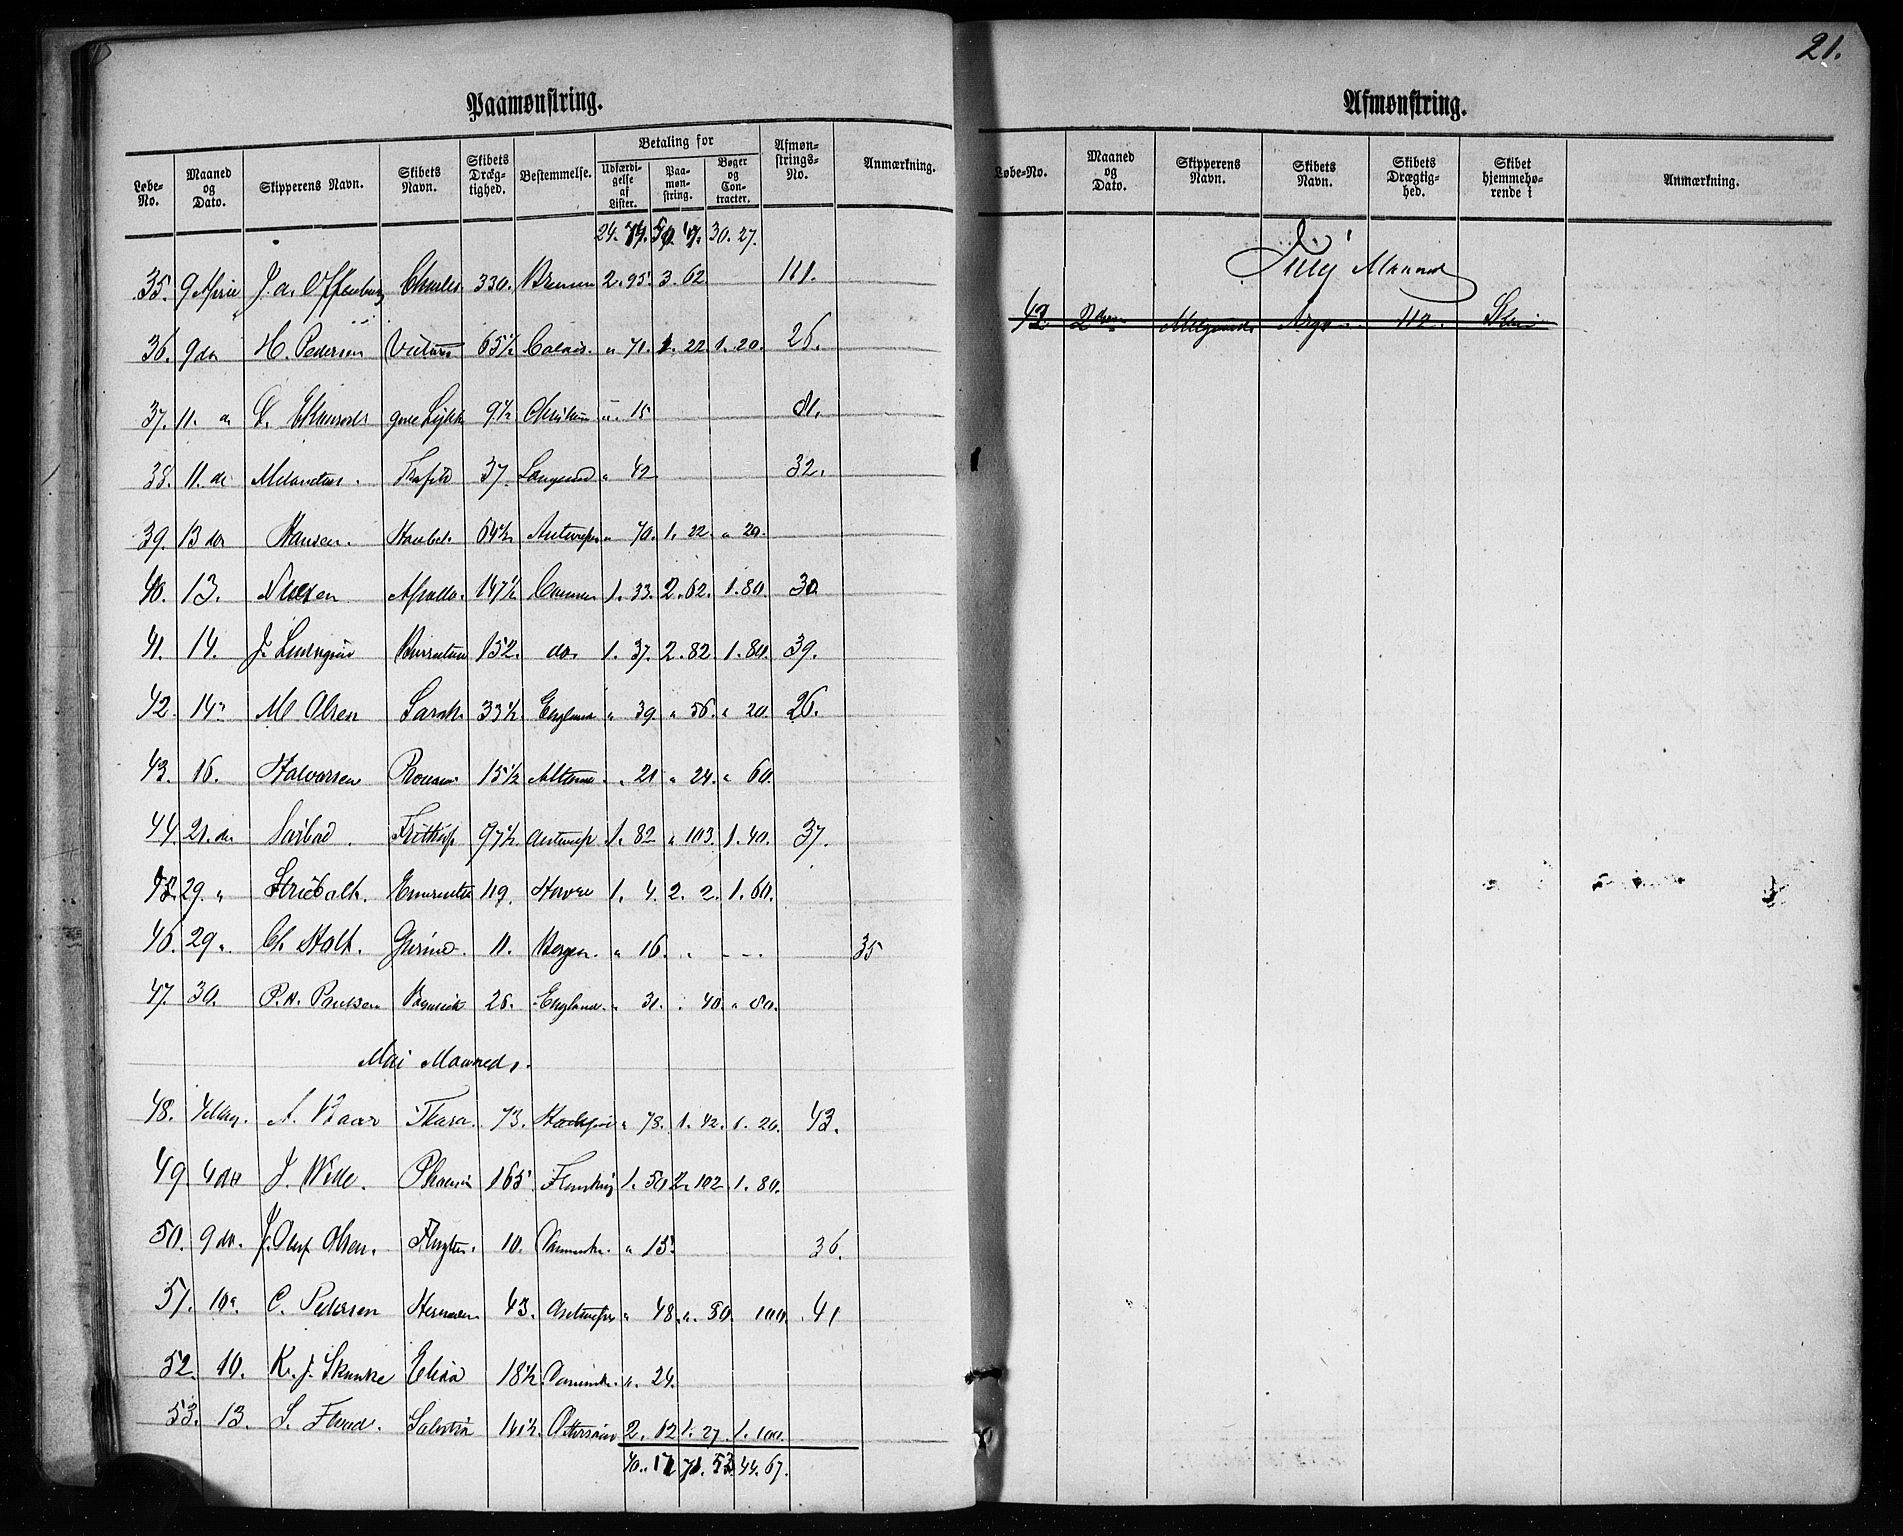 21.
Paamønstring.
Løbe-No. Maaned og Dato. Skipperens Navn. Skibets Navn. Skibets Dræg-tighed. Bestemmelse. Betaling for Udfærdi-gelse af Lister. Paa-møn-string. Bøger og Con-tracter. Afmøn-strings-No. Anmærkning.
24. 74. 50. 30. 27.
35. 9 April J. A. Offenberg Charles 330. Bremen 2. 95. 3. 62. 111.
36. 9 do H. Pedersen 65½ Calais. " 71. 1. 22. 1. 20. 26.
37. 11. do gode Lykke 9½ " 15 81.
38. 11. do 37. Langesund " 42 32.
39. 13 do Hansen. Haabet. 64½ Antwerpen " 70. 1. 22. " 20.
40. 13. Nielsen Apollo. 147½ 1. 33. 2. 62. 1. 80. 30
41. 14. J. 152. do. 1. 37. 2. 82. 1. 80. 39.
42. 14. M Olsen Sarah. 33½ England " 39. " 56. " 20. 26.
43. 16. Halvorsen 15½ Altona " 21 " 24. " 60.
44. 21. do Frithiof 97½ Antwerp 1. 82 " 103. 1. 40. 37.
45. 29. " 119. Havre 1. 4. 2. 2. 1. 60.
46. 29 " Ch. Holt. 11. Bergen. " 16. 35
47. 30. P. A. Paulsen 26. England. " 31. 40. " 80.
Mai Maaned.
48. 4 May. A. Baar Thara. 73. " 78. 1. 42. 1. 20. 43.
49. 4 do J. Wille. Phoenix 165 Flensburg 1. 50 2. 102. 1. 80.
50. 9 do. J. Oluf Olsen. 10. Danmark. " 15. 36.
51. 10 " C. Pedersen 43. Antwerpen " 48. " 80. 100. 41
52. 10. K. J. Skunke Elida 18½ Danmark. " 24.
53. 13. S. 141½ 2. 12 1. 27. 1. 100.
40. 17 71. 53. 44. 67.
Afmønstring.
Løbe-No. Maaned og Dato. Skipperens Navn. Skibets Navn. Skibets Drægtig-hed. Skibet hjemmehø-rende i Anmærkning.
July Maaned
42 2 den Argo 112. Skien